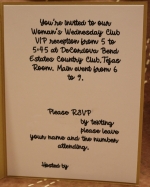 You're invited to our
Woman's Wednesday Club
VIP reception from 5 to
5:45 at DeCordova Bend
Estates Country Club, Tejas
Room. Main event from 6
to 9.
Please RSVP
by texting
please leave
your name and the number
attending.
Hosted by